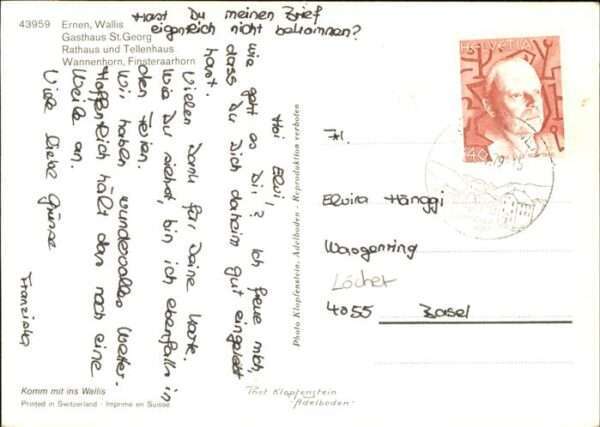 43959 Ernen, Wallis
Gasthaus St. Georg
Rathaus und Tellenhaus
Wannenhorn, Finsteraarhorn
Hast Du meinen Brief
eigentlich nicht bekommen?
Hoi Elvi,
wie geht es Dir? Ich freue mich,
dass Du Dich daheim gut eingelebt
hast.
Vielen Dank für Deine Karte.
Wie Du siehst, bin ich ebenfalls in
den Ferien.
Wir haben wundervolles Wetter.
Hoffentlich hält das noch eine
Weile an.
Viele liebe Grüsse
Franziska
Komm mit ins Wallis
Printed in Switzerland - Imprimé en Suisse
Photo Klopfenstein, Adelboden - Reproduktion verboten
Phot Klopfenstein
-Adelboden-
HELVETIA
40
Frl.
Elvira Hänggi
Wasgenring
Löcher
4055 Basel